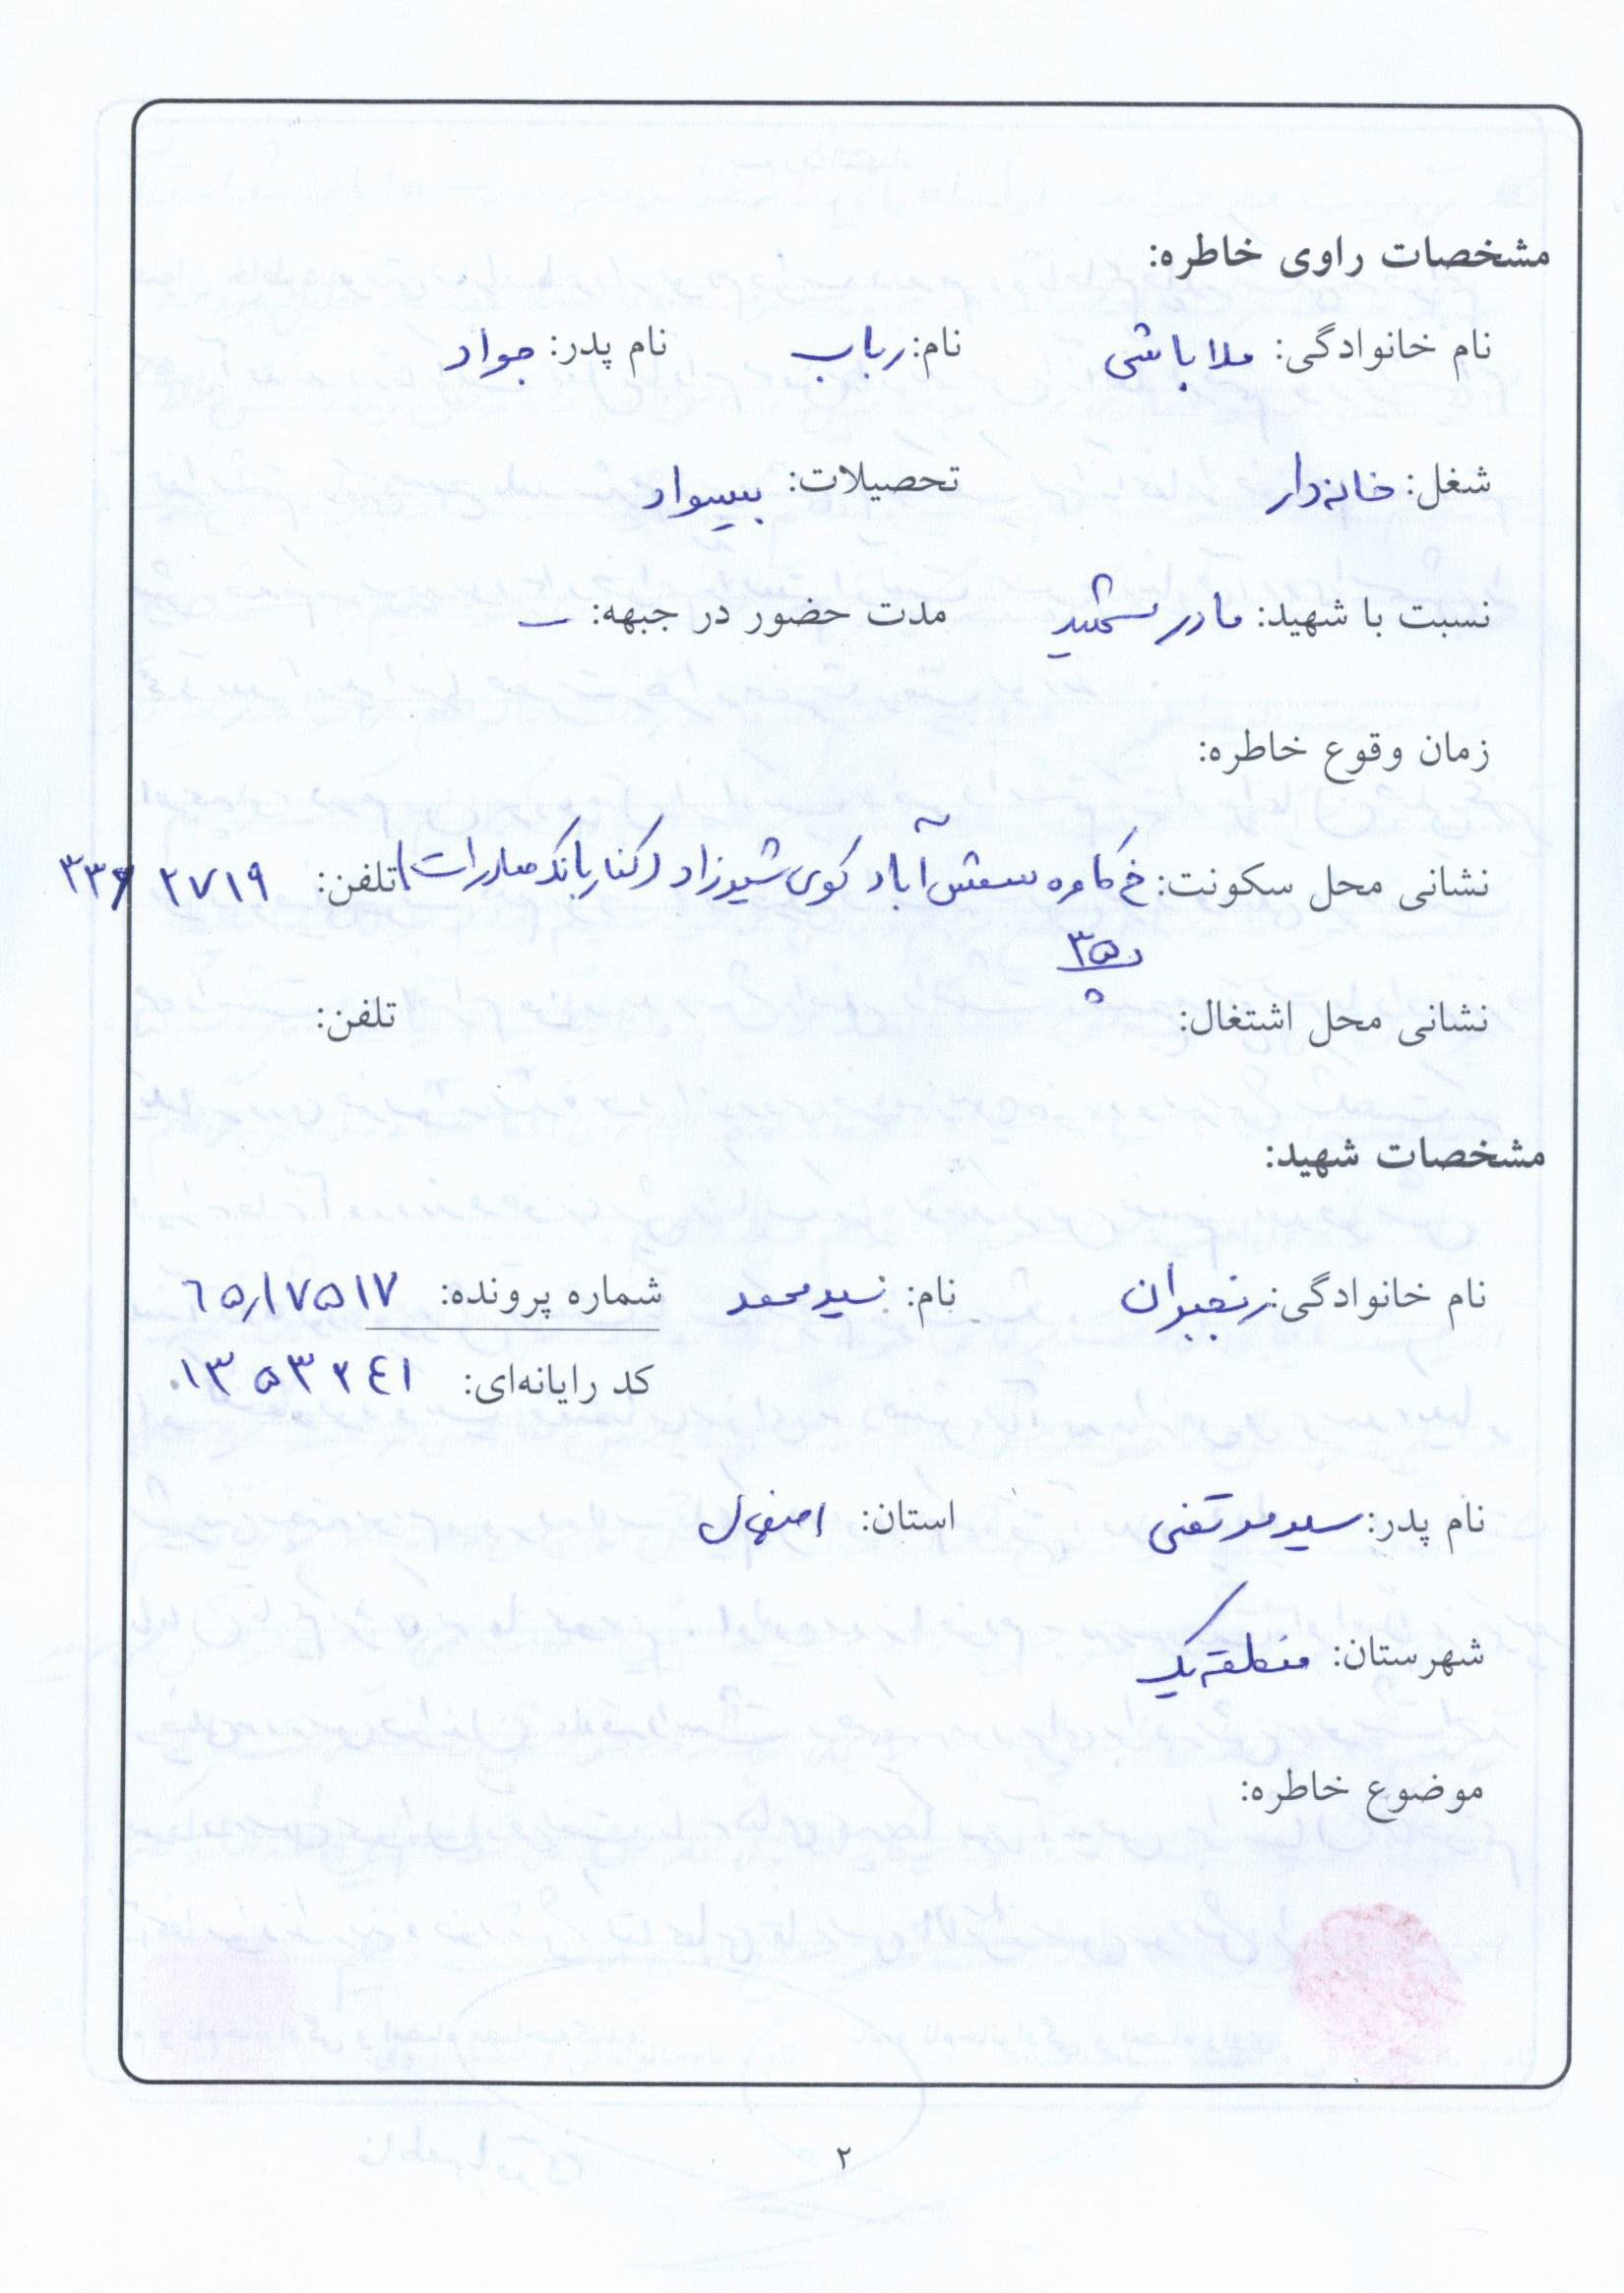 مشخصات راوی خاطره:
نام خانوادگی: ملاباشی نام: رباب نام پدر: جواد
شغل: خانه‌دار تحصیلات: بیسواد
نسبت با شهید: مادر شهید مدت حضور در جبهه: –
زمان وقوع خاطره:
نشانی محل سکونت: خ کاوه شمس‌آباد کوی شیرزاد (کنار بانک صادرات) تلفن: ۲۷۱۹
۳۵
نشانی محل اشتغال: تلفن:
مشخصات شهید:
نام خانوادگی: رنجبران نام: سیدمحمد شماره پرونده: ۶۵/۱۷۵۱۷
کد رایانه‌ای: ۱۳۵۳۲۴۱
نام پدر: سیدمرتضی استان: اصفهان
شهرستان: منطقه یک
موضوع خاطره:
۲